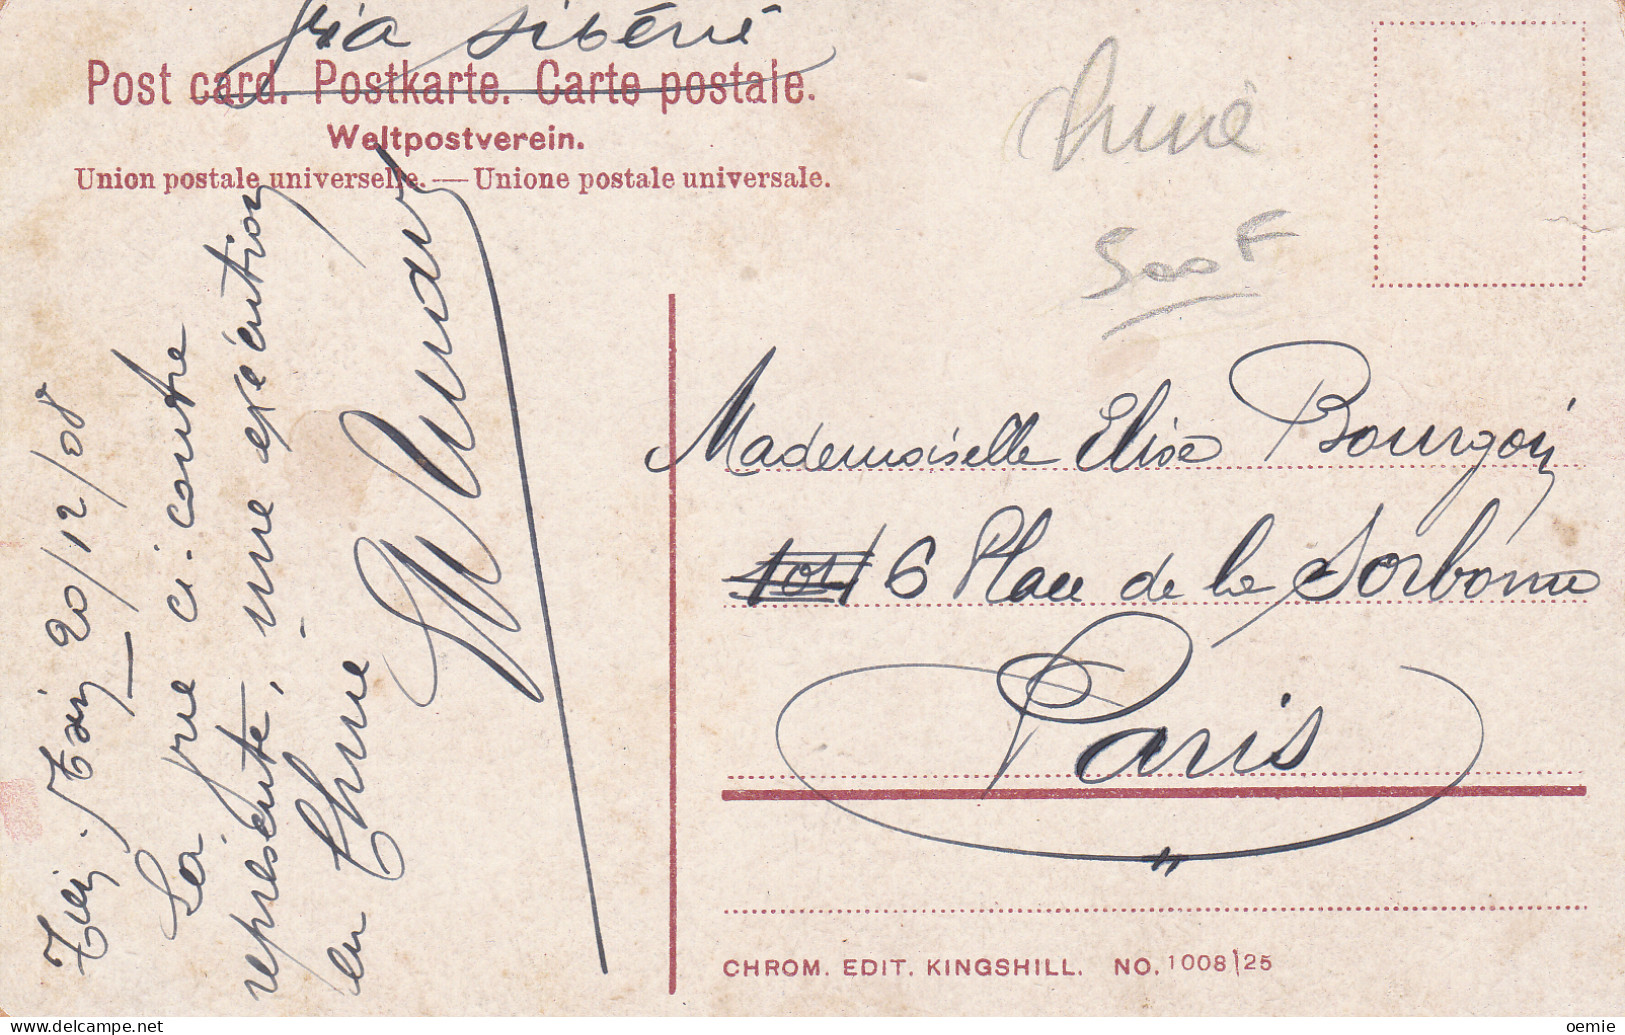 via Sibérie
Post card. Postkarte. Carte postale.
Weltpostverein.
Union postale universelle. — Unione postale universale.
Chine
500 F
Tien-Tsin 20/12/08
La vue ci-contre
représente, une exécution
en Chine
Mademoiselle Elise Bourgoin
101 6 Place de la Sorbonne
Paris
"
CHROM. EDIT. KINGSHILL. NO. 1008/25
oemie